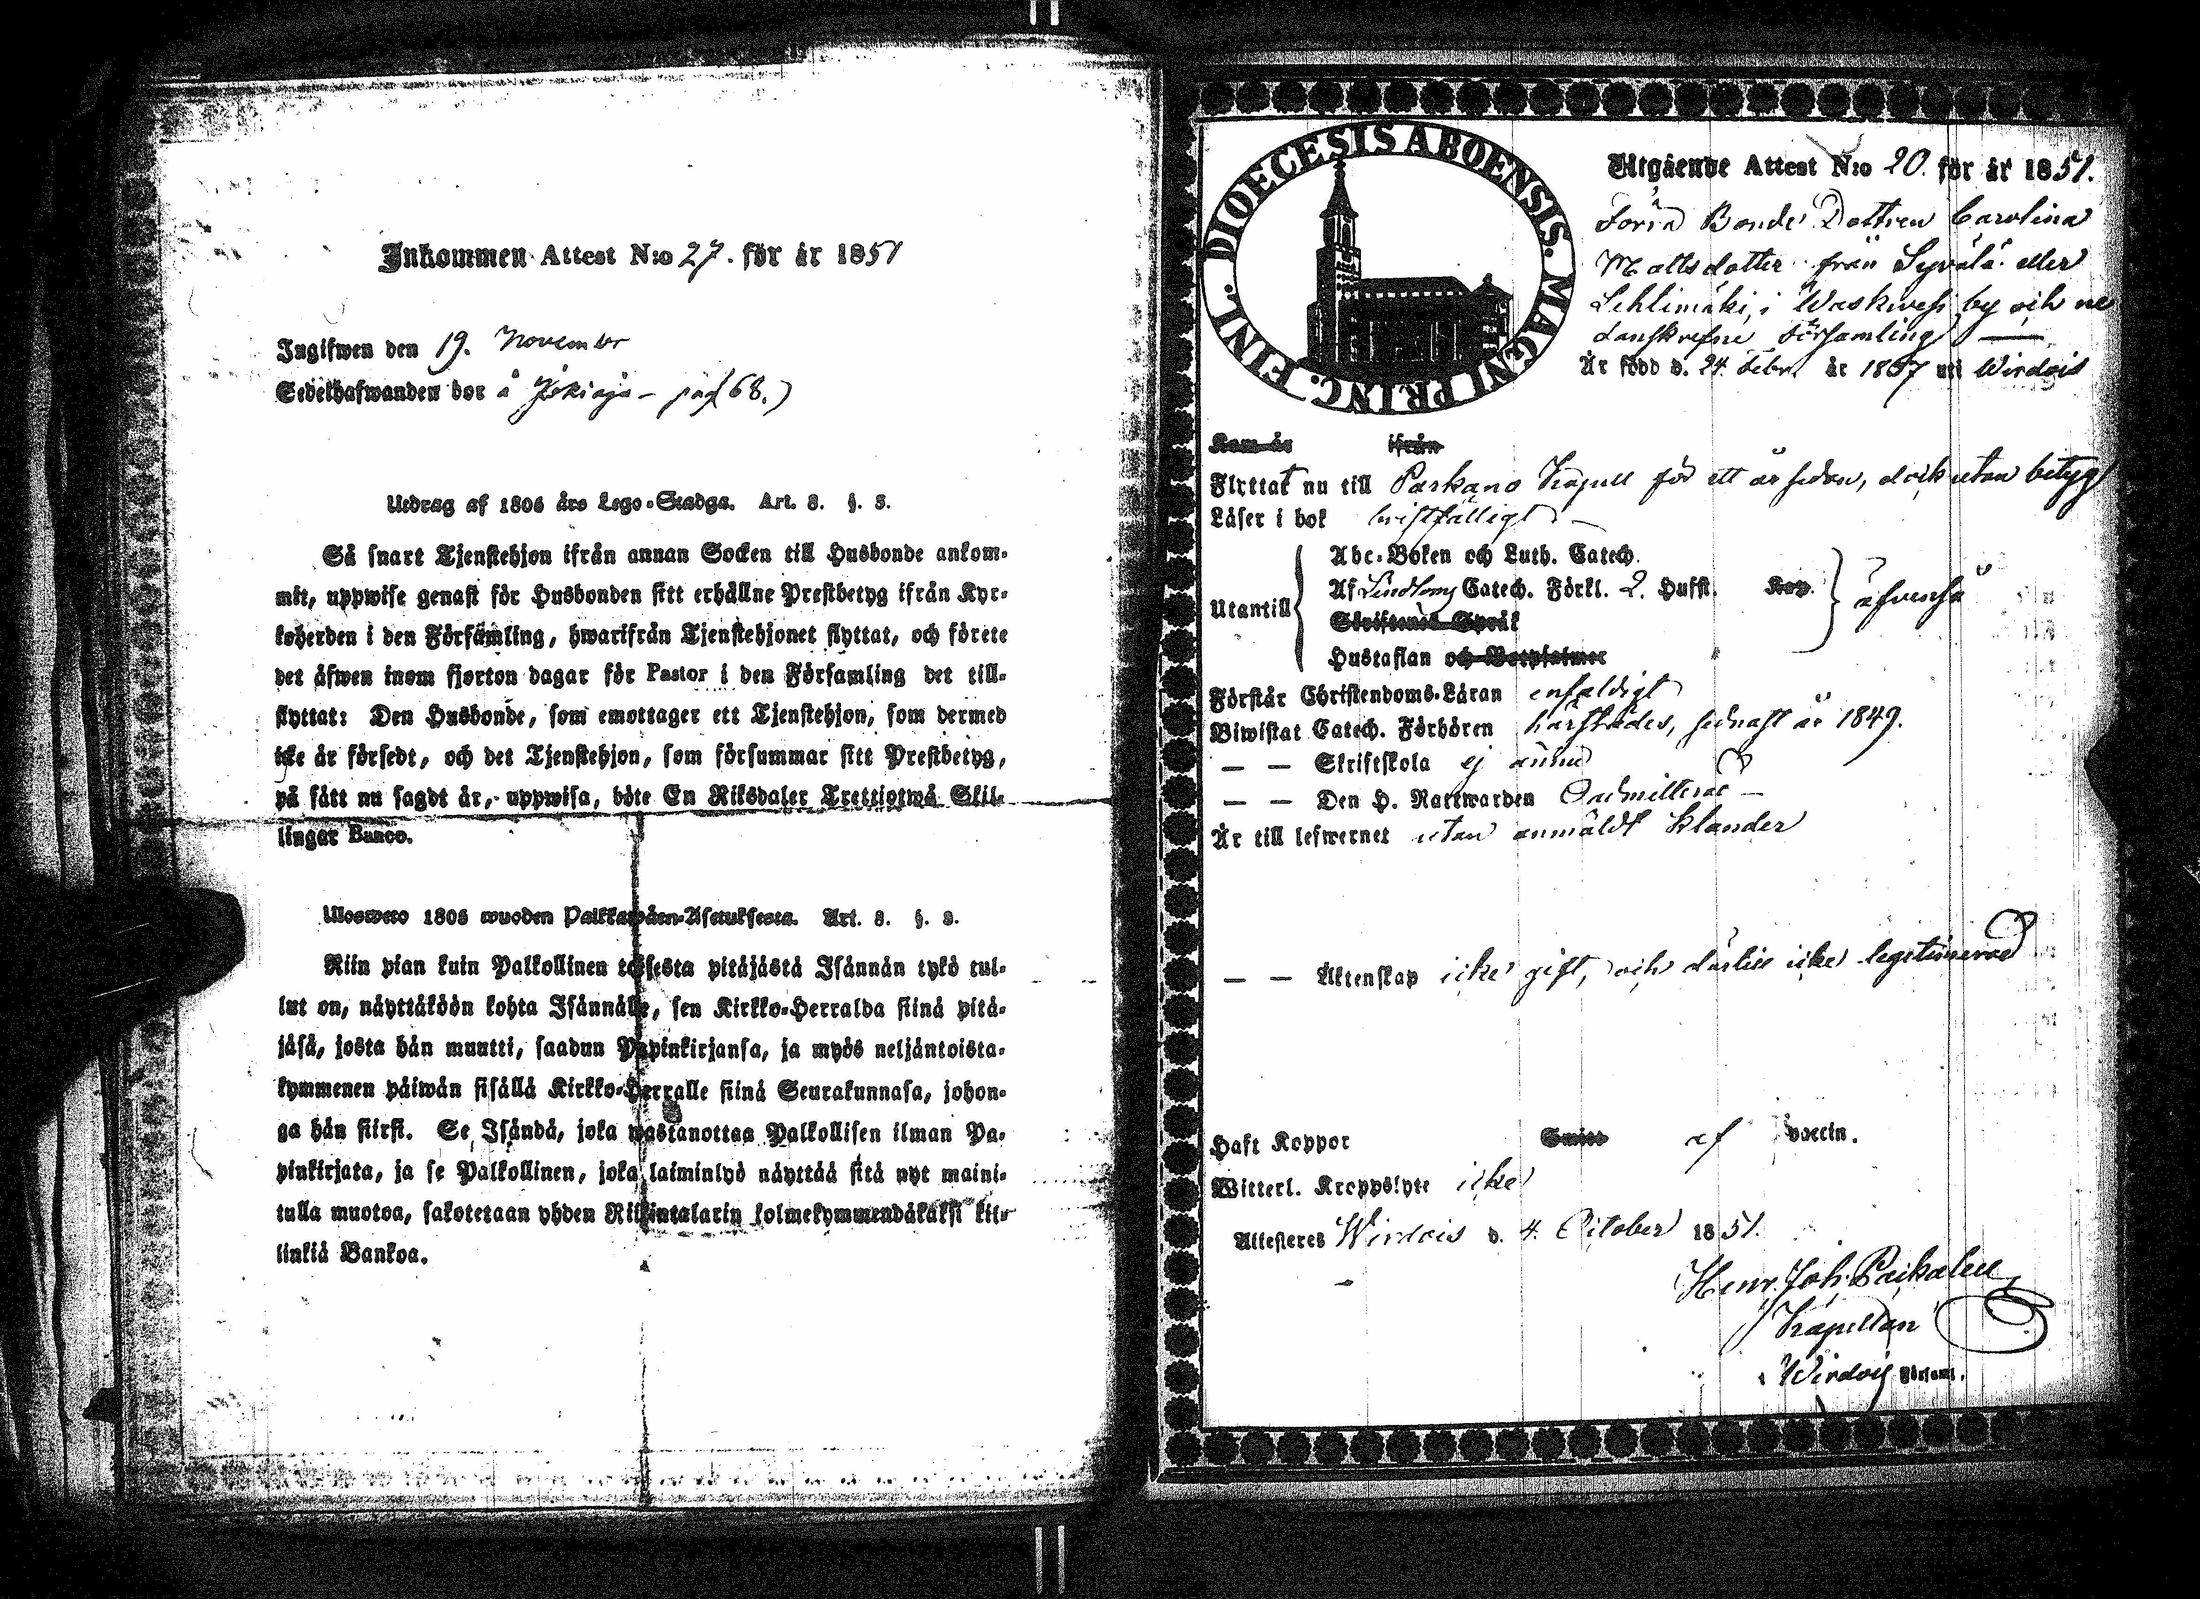 Inkommen Attest N:o 27. för år 1851
Ingifwen den 19. November
Sedelhafwanden bor å pag 68.)
Utdrag af 1805 års Lego-Stadga. Art. 8. §. 3.
Så snart Tjenstehjon ifrån annan Socken till Husbonde ankom-
mit, uppwise genast för Husbonden sitt erhållne Prestbetyg ifrån Kyr-
koherden i den Församling, hwarifrån Tjenstehjonet flyttat, och förete
det äfwen inom fjorton dagar för Pastor i den Församling det till-
flyttat: Den Husbonde, som emottager ett Tjenstehjon, som dermed
icke är försedt, och det Tjenstehjon, som försummar sitt Prestbetyg,
på sätt nu sagdt är, uppwisa, böte En Riksdaler Trettiotwå Skil-
lingar Banco.
Ulosweto 1805 wuoden Palkkawäen-Asetuksesta. Art. 8. §. 3.
Niin pian kuin Palkollinen toisesta pitäjästä Isännän tykö tul-
lut on, näyttäköön kohta Isännälle, sen Kirkko-Herralda siinä pitä-
jäsä, josta hän muutti, saadun Papinkirjansa, ja myös neljäntoista-
kymmenen päiwän sisällä Kirkko-Herralle siinä Seurakunnasa, johon-
ga hän siirsi. Se Isändä, joka wastanottaa Palkollisen ilman Pa-
pinkirjata, ja se Palkollinen, joka laiminlyö näyttää sitä nyt maini-
tulla muotoa, sakotetaan yhden Riikintalarin kolmekymmendäkaksi kil-
linkiä Bankoa.
DIOECESIS ABOENSIS. MAGNI PRINC. FINL.
Utgående Attest N:o 20. för år 1851.
Förra Bonde Dottren Carolina
Mattsdotter från Syvälä eller
Lehtimäki, i Waskivesi by och ne
danskrefne församling —
Är född d. 24 Febr. år 1837 uti Wirdois
Kom år ifrån
Flyttat nu till Parkano Kapell för ett år sedan, dock utan betyg
Läser i bok bristfälligt —
Utantill
Abc-Boken och Luth. Catech.
Af Lindboms Catech. Förkl. 2. Hufst. Kap. äfvenså
Skriftenes Språk
Hustaflan och Botpsalmer
Förstår Christendoms-Läran enfaldigt
Biwistat Catech. Förhören härstädes, sednast år 1849.
— — Skriftskola ej ännu
— — Den H. Nattwarden Oadmitterad —
Är till lefwernet utan anmäldt klander
— — Äktenskap icke gift, och därtill icke legitimerad
Haft Koppor Smitt af vaccin.
Witterl. Kroppslyte icke
Attesteres Wirdois d. 4. October 1851.
Henr. Joh. Paikalen
Kapellan
Wirdois Församl.